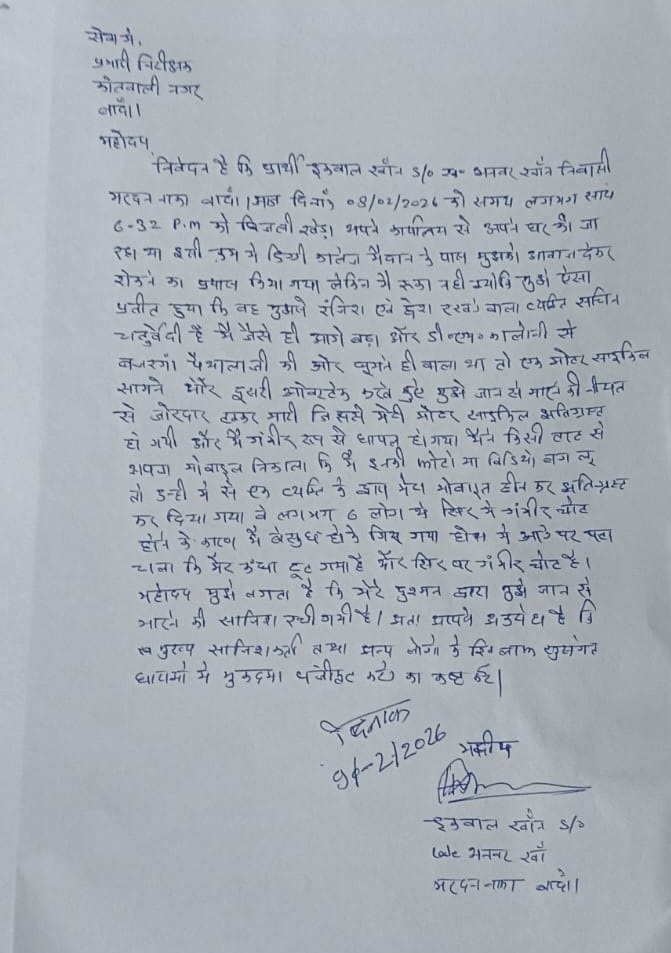 सेवा में,
प्रभारी निरीक्षक
कोतवाली नगर
बाँदा।
महोदय,
निवेदन है कि प्रार्थी इकबाल खाँन S/o स्व० अनवर खाँन निवासी
मरदन नाका बाँदा। आज दिनाँक 08/02/2026 को समय लगभग सायं
6-32 P.m को बिजली खेड़ा अपने कार्यालय से अपने घर को जा
रहा था इसी क्रम में डिग्री कालेज मैदान के पास मुझको आवाज देकर
रोकने का प्रयास किया गया लेकिन मैं रूका नही क्योंकि मुझे ऐसा
प्रतीत हुया कि वह मुझसे रंजिश एवं द्वेश रखने वाला व्यक्ति सचिन
चतुर्वेदी है मैं जैसे ही आगे बढ़ा और डी०एम० कालोनी से
बजरंग की ओर घुमने ही वाला था तो एक मोटर साइकिल
सामने और दूसरी ओवरटेक करते हुए मुझे जान से मारने की नीयत
से जोरदार टक्कर मारी जिससे मेरी मोटर साइकिल क्षतिग्रस्त
हो गयी और मैं गंभीर रूप से घायल हो गया मैंने किसी तरह से
अपना मोबाइल निकाला कि मैं इनकी फोटो या विडियो बना लू
तो उन्ही में से एक व्यक्ति के द्वारा मेरा मोबाइल छीन कर क्षतिग्रस्त
कर दिया गया वे लगभग 6 लोग थे सिर में गंभीर चोट
होने के कारण मैं बेसुध होके गिर गया होश में आने पर पता
चला कि मेरा कंधा टूट गया है और सिर पर गंभीर चोट है।
महोदय मुझे लगता है कि मेरे दुश्मन द्वारा मुझे जान से
मारने की साजिश रची गयी है। अतः आपसे अनुरोध है कि
मुख्य साजिशकर्ता तथा अन्य लोगो के खिलाफ सुसंगत
धाराओ मे मुकदमा पंजीकृत करने का कष्ट करें।
दिनांक
-2/2026
भवदीय
इकबाल खाँन S/o
Late अनवर खाँ
मरदन नाका बाँदा।